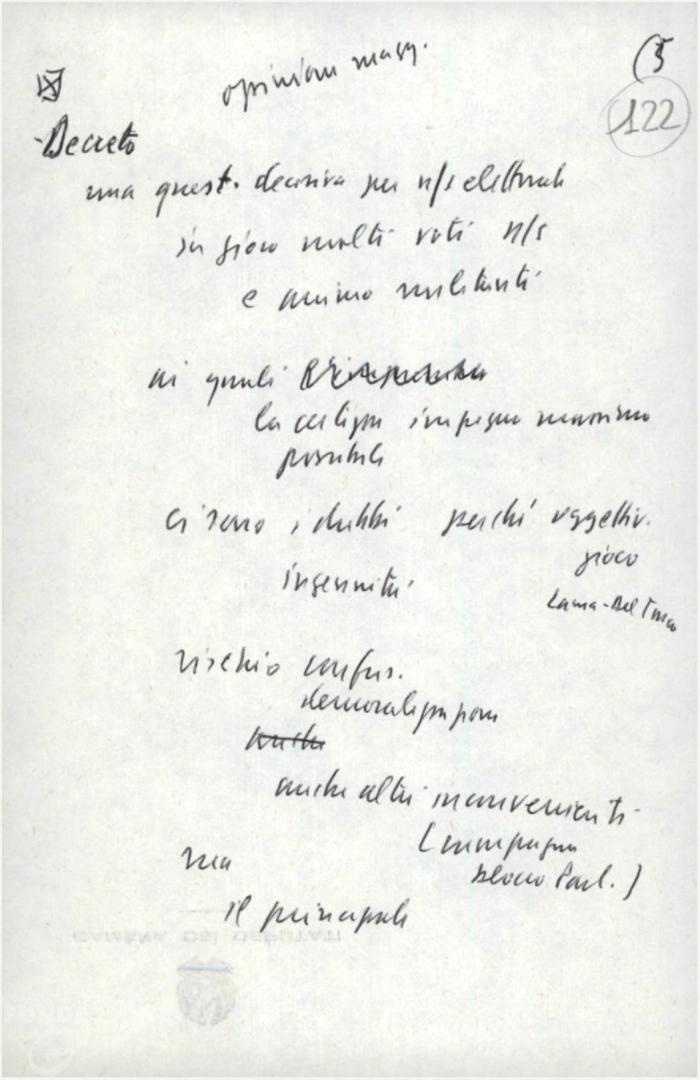 opinioni magg.
(5
122
Decreto
una quest. decisiva per n/s elettorale
in gioco molti voti n/s
e animo militanti
ai quali
impegno massimo
possibile
ci sono i dubbi perché oggettiv.
gioco
ingenuità
Lama-Del Turco
rischio confus.
demoralizzazione
anche
anche altri inconvenienti
(campagna
blocco Parl.)
ma
il principale
CAMERA DEI DEPUTATI